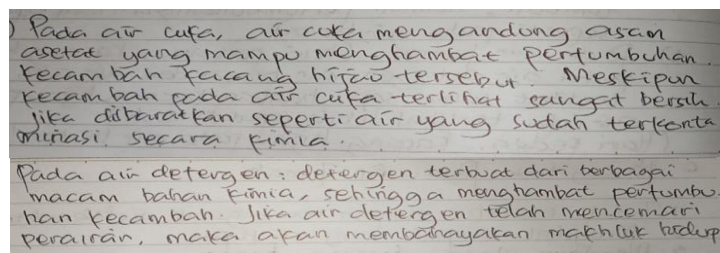 ) Pada air cuka, air cuka mengandung asam
asetat yang mampu menghambat pertumbuhan.
kecambah kacang hijau tersebut. Meskipun
kecambah pada air cuka terlihat sangat bersih.
jika dibaratkan seperti air yang sudah terkonta
minasi secara kimia.
Pada air detergen: detergen terbuat dari berbagai
macam bahan kimia, sehingga menghambat pertumbu
han kecambah. Jika air detergen telah mencemari
perairan, maka akan membahayakan makhluk hidup